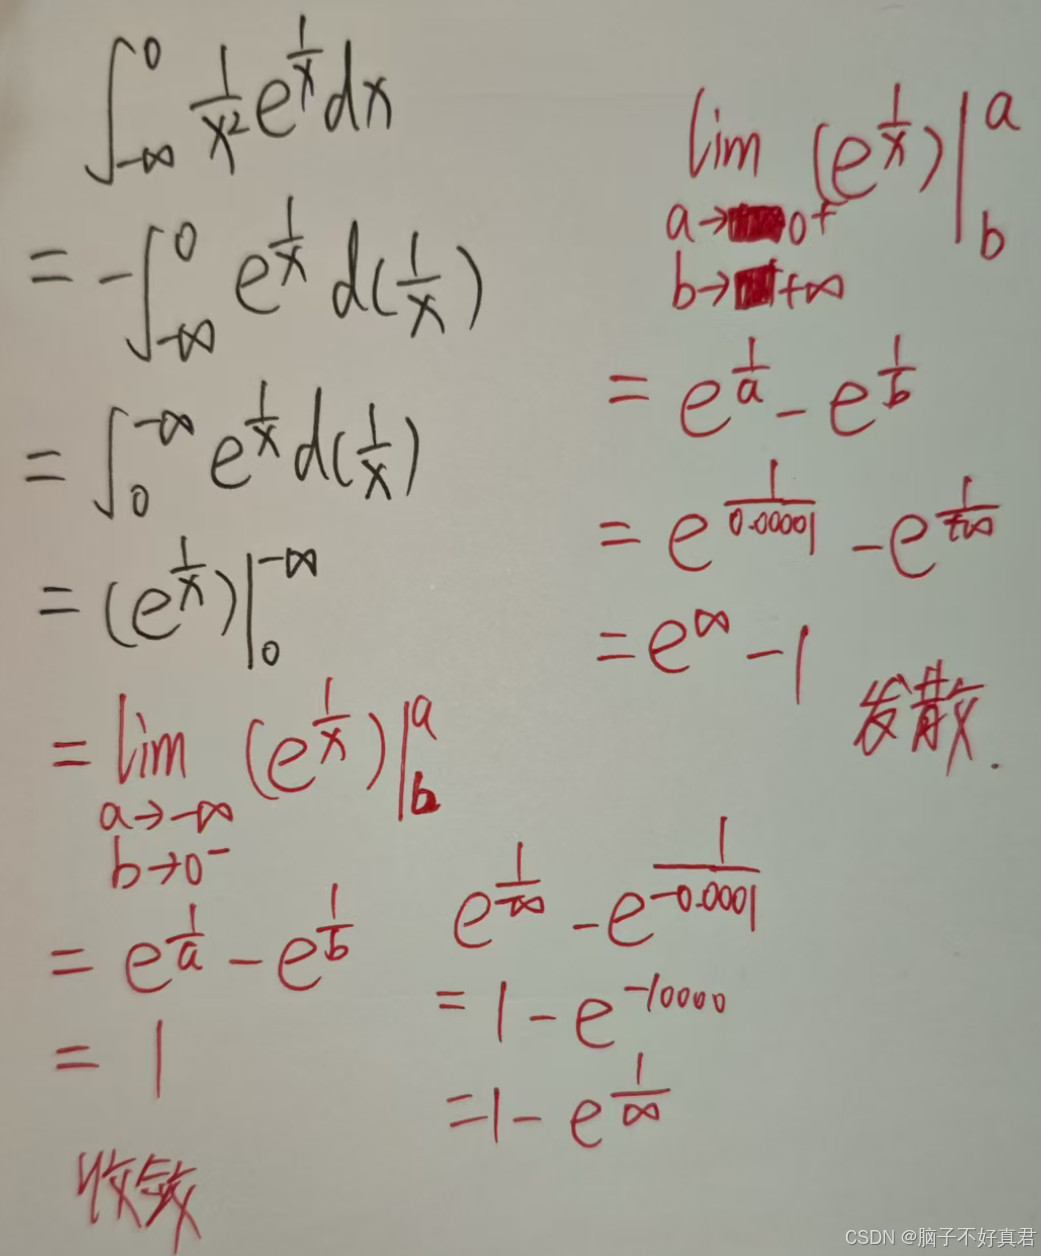 ∫_{-∞}^{0} \frac{1}{x²} e^{\frac{1}{x}} dx
= -∫_{-∞}^{0} e^{\frac{1}{x}} d(\frac{1}{x})
= ∫_{0}^{-∞} e^{\frac{1}{x}} d(\frac{1}{x})
= (e^{\frac{1}{x}})|_{0}^{-∞}
= lim (e^{\frac{1}{x}})|_{b}^{a}
a→-∞
b→0⁻
= e^{\frac{1}{a}} - e^{\frac{1}{b}}
= 1
收敛
e^{\frac{1}{-∞}} - e^{\frac{1}{-0.0001}}
= 1 - e^{-10000}
= 1 - e^{\frac{1}{∞}}
lim (e^{\frac{1}{x}})|_{b}^{a}
a→0⁺
b→+∞
= e^{\frac{1}{a}} - e^{\frac{1}{b}}
= e^{\frac{1}{0.00001}} - e^{\frac{1}{+∞}}
= e^{∞} - 1
发散.
CSDN @脑子不好真君